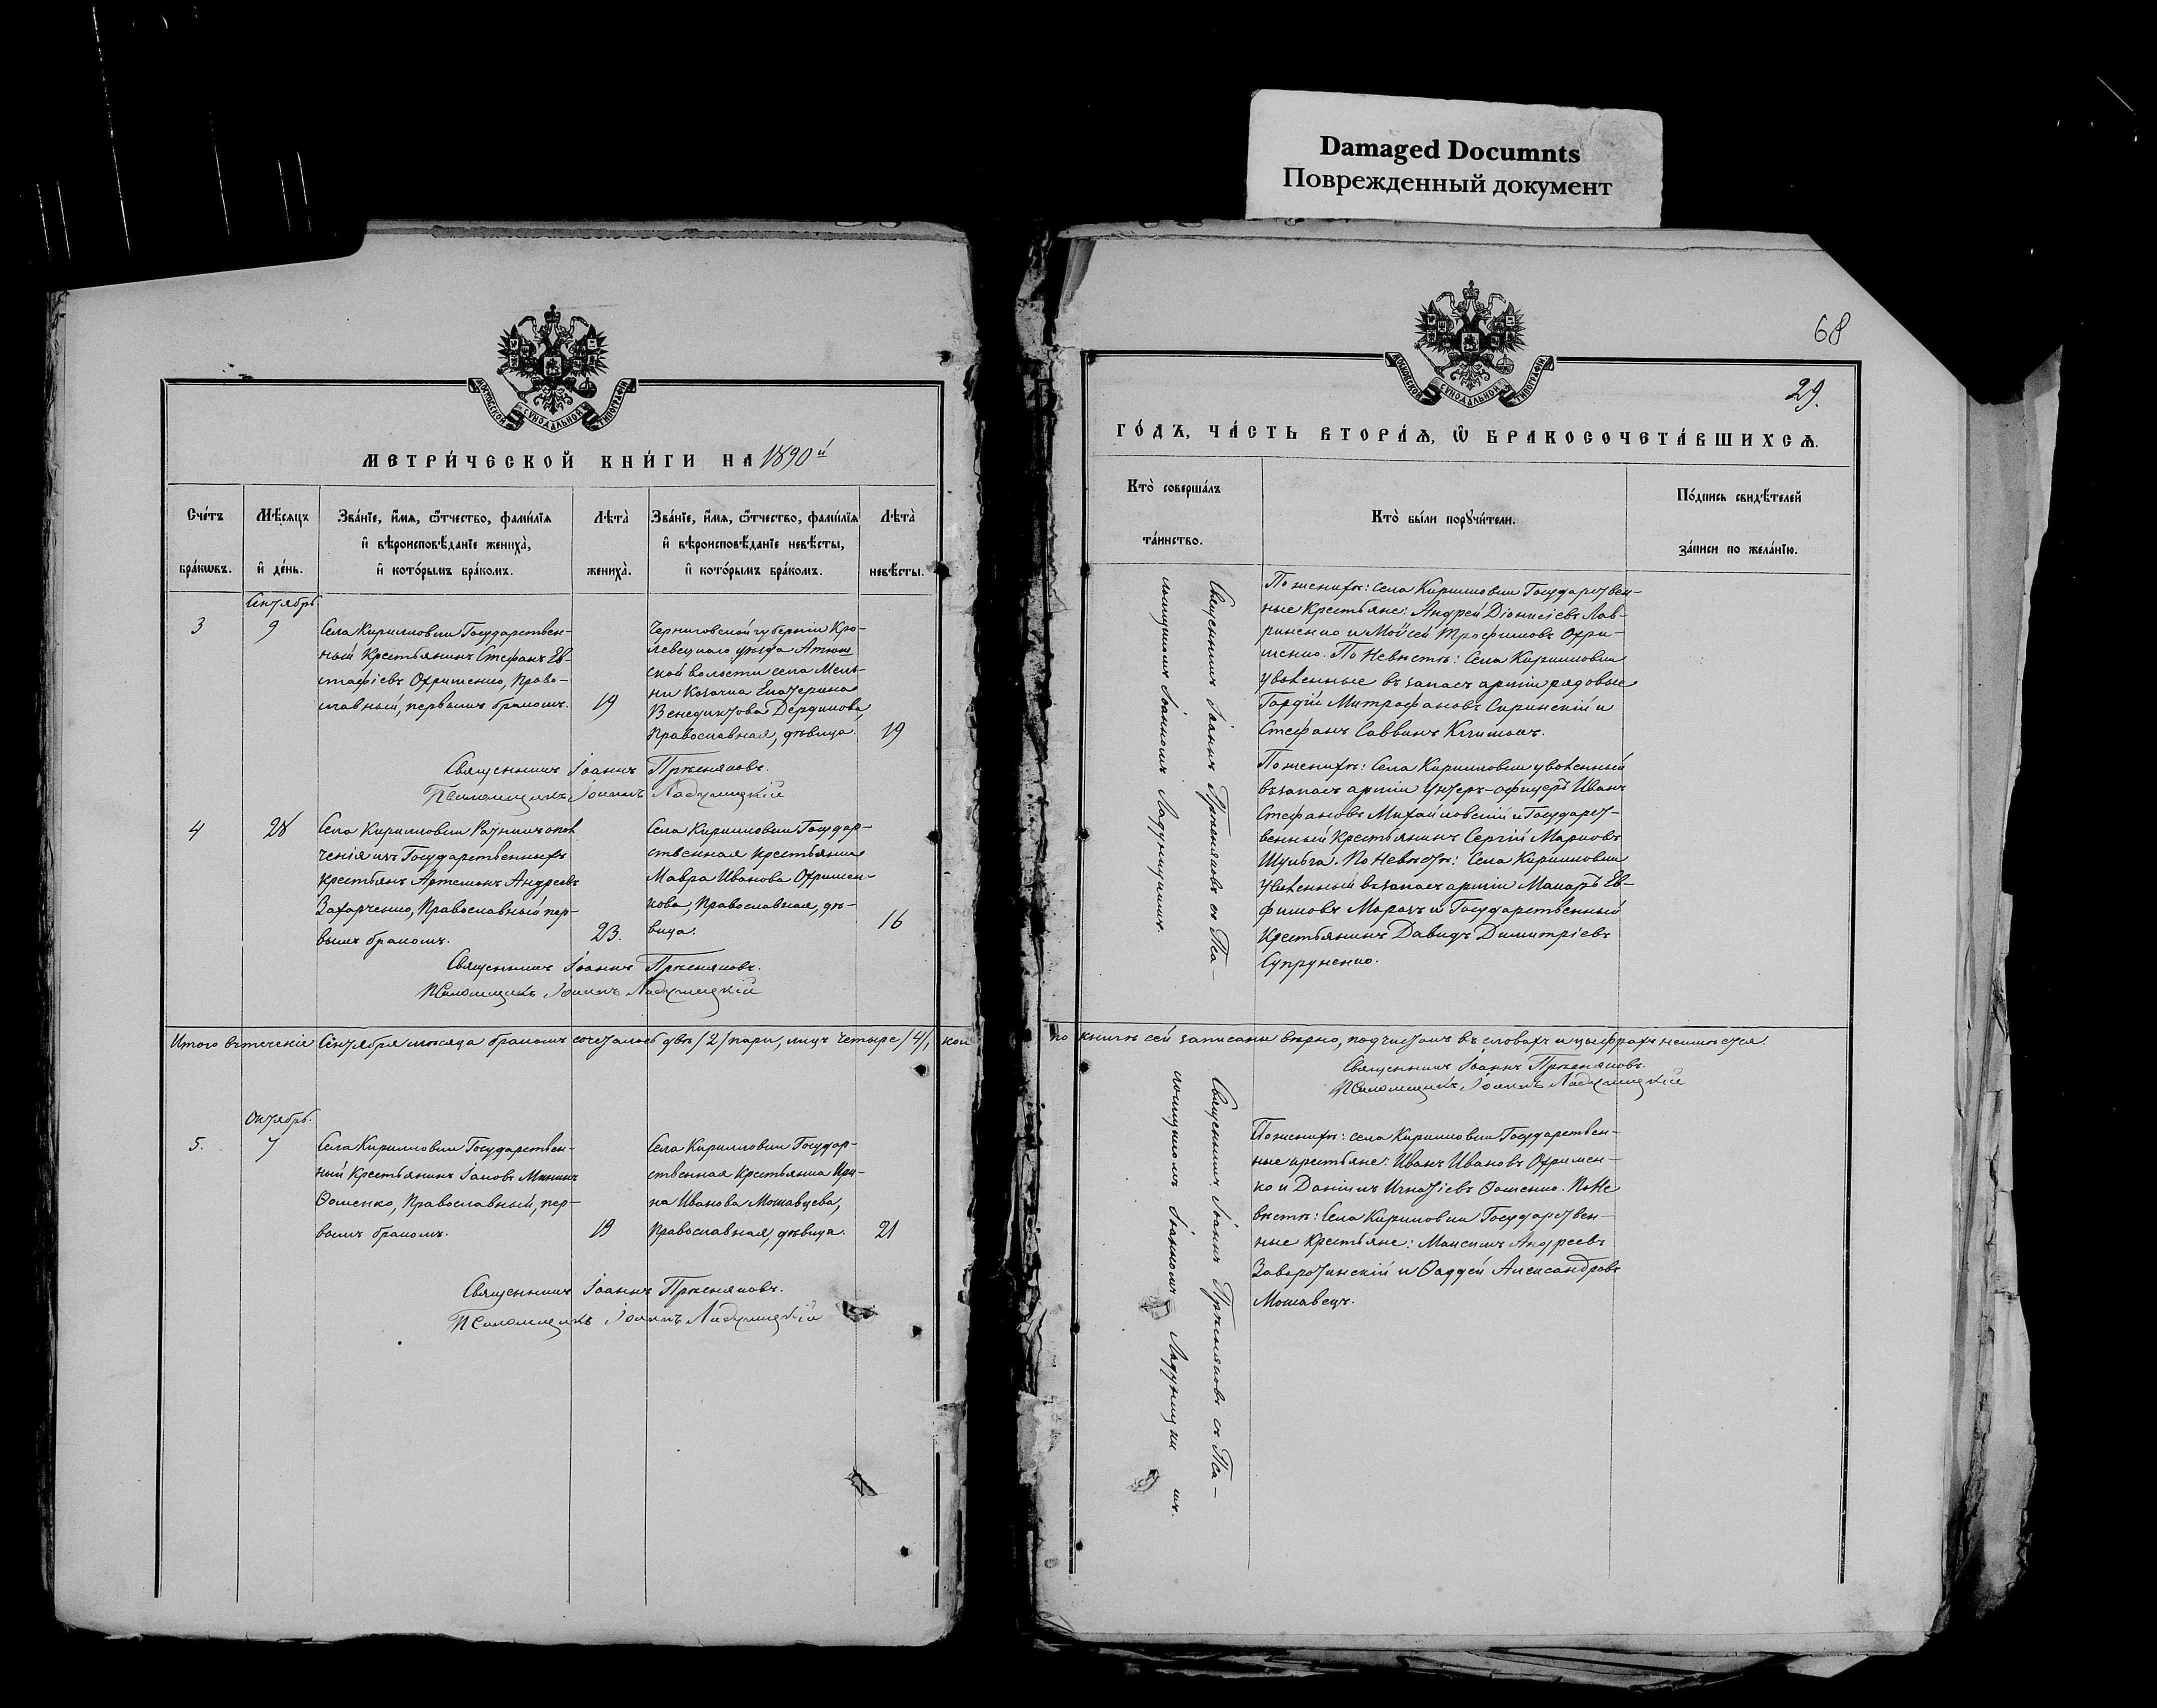 Damaged Documnts
Поврежденный документ
МОСКОВСКОЙ СѴНОДАЛЬНОЙ ТИПОГРАФІИ
МЕТРИ́ЧЕСКОЙ КНИ́ГИ НА 1890й
Сче́тъ бра́кѡвъ.
Мѣ́сяцъ и҆ де́нь.
Зва́нїе, и҆́мя, ѻ҆́тчество, фами́лїя
и҆ вѣроисповѣ́данїе жениха̀,
и҆ кото́рымъ бра́комъ.
Лѣта̀ жениха̀.
Зва́нїе, и҆́мя, ѻ҆́тчество, фами́лїя
и҆ вѣроисповѣ́данїе невѣ́сты,
и҆ кото́рымъ бра́комъ.
Лѣта̀ невѣ́сты.
Сентябрь
3
9
Села Кирилловки Государствен-
ный Крестьянинъ Стефанъ Ев-
стафіевъ Охрименко, Право-
славный, первымъ бракомъ.
19
Черниговской губерніи Кро-
левецкаго уѣзда Атюш
ской волости села Мель-
ни Козачка Екатерина
Венедиктова
Православная, дѣвица.
19
Священникъ Іоаннъ
Псаломщикъ Іоаннъ
4
28
Села Кирилловки Ратникъ опол
ченія изъ Государственныхъ
крестьянъ Артемонъ Андреевъ
Захарченко, Православный пер-
вымъ бракомъ.
23.
Села Кирилловки Государ-
ственная крестьянка
Мавра Иванова Охримен-
кова, Православная, дѣ-
вица.
16
Священникъ Іоаннъ
Псаломщикъ Іоаннъ
Итого въ теченіе Сентября мѣсяца бракомъ сочеталось двѣ /2/ пары, лицъ четыре /4/, кои
Октябрь.
5.
7
Села Кирилловки Государствен-
ный Крестьянинъ Іаковъ Мининъ
Ѳоменко, Православный, пер-
вымъ бракомъ.
19
Села Кирилловки Государ-
ственная Крестьянка Ири-
на Иванова Мошавцева,
Православная, дѣвица.
21
Священникъ Іоаннъ
Псаломщикъ Іоаннъ
68
29.
МОСКОВСКОЙ СѴНОДАЛЬНОЙ ТИПОГРАФІИ
ГО́ДЪ, ЧА́СТЬ ВТОРА́Ѧ, Ѡ҆ БРАКОСОЧЕТА́ВШИХСѦ.
Кто̀ соверша́лъ
та́инство.
Кто̀ бы́ли порꙋчи́тели.
По́дпись свидѣ́телей
за́писи по жела́нїю.
Священникъ Іоаннъ
съ Пса-
ломщикомъ Іоанномъ
По женихѣ: села Кирилловки Государствен-
ные Крестьяне: Андрей Діонисіевъ Лав-
риненко и Моѵсей Трофимовъ Охри-
менко. По Невѣстѣ: Села Кирилловки
уволенные въ запасъ арміи рядовые
Гордій Митрофановъ Скринскій и
Стефанъ Саввинъ Клименъ.
По женихѣ: Села Кирилловки уволенный
въ запасъ арміи Унтеръ-офицеръ Иванъ
Стефановъ Михайловскій и Государст-
венный Крестьянинъ Сергій Марковъ
Шульга. По Невѣстѣ: Села Кирилловки
Уволенный въ запасъ арміи Макаръ Ев-
фимовъ Морозъ и Государственный
Крестьянинъ Давидъ Димитріевъ
Супруненко.
по книгѣ сей записаны вѣрно, подчистокъ въ словахъ и цыфрахъ неимѣется.
Священникъ Іоаннъ
Псаломщикъ Іоаннъ
Священникъ Іоаннъ
съ Пса-
ломщикомъ Іоанномъ
По женихѣ: села Кирилловки Государствен-
ные крестьяне: Иванъ Ивановъ Охримен-
ко и Даніилъ Игнатіевъ Ѳоменко. По Не
вѣстѣ: Села Кирилловки Государствен-
ные Крестьяне: Максимъ Андреевъ
Заваротинскій и Ѳаддей Александровъ
Мошавецъ.